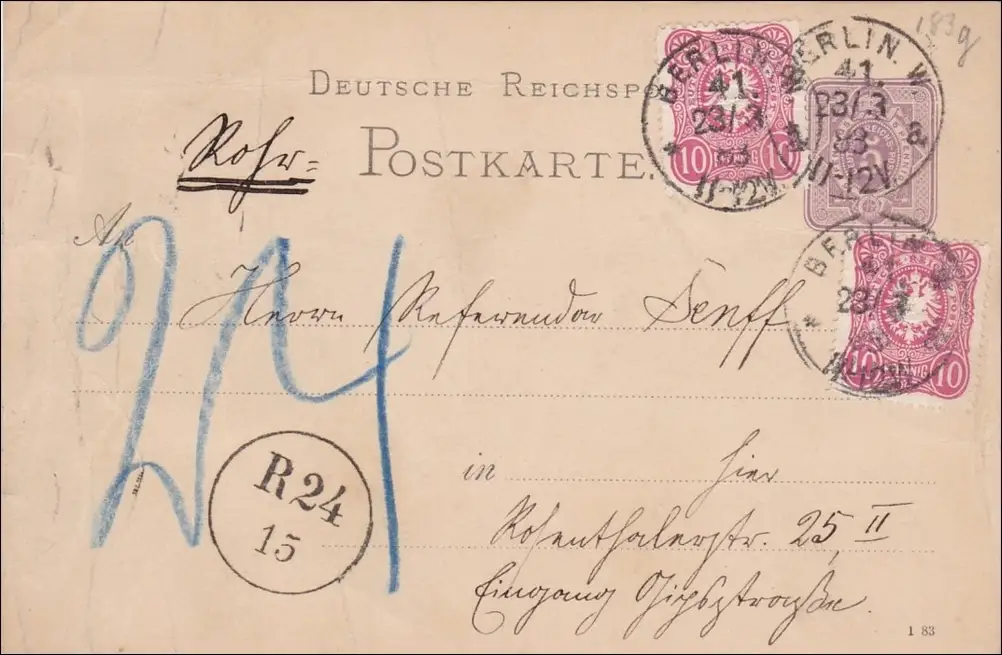 183g
DEUTSCHE REICHSPO
Rohr=
POSTKARTE.
BERLIN. W.
41.
23/3
83
11-12V.
*
10 10
BERLIN. W.
41.
23/3 a
83
11-12V
5
An
Herrn Referendar Senff
BERLIN
23/3
10 PFENNIG 10
24
in hier
Rosenthalerstr. 25, II
Eingang Gipsstraße.
R24
15
1 83